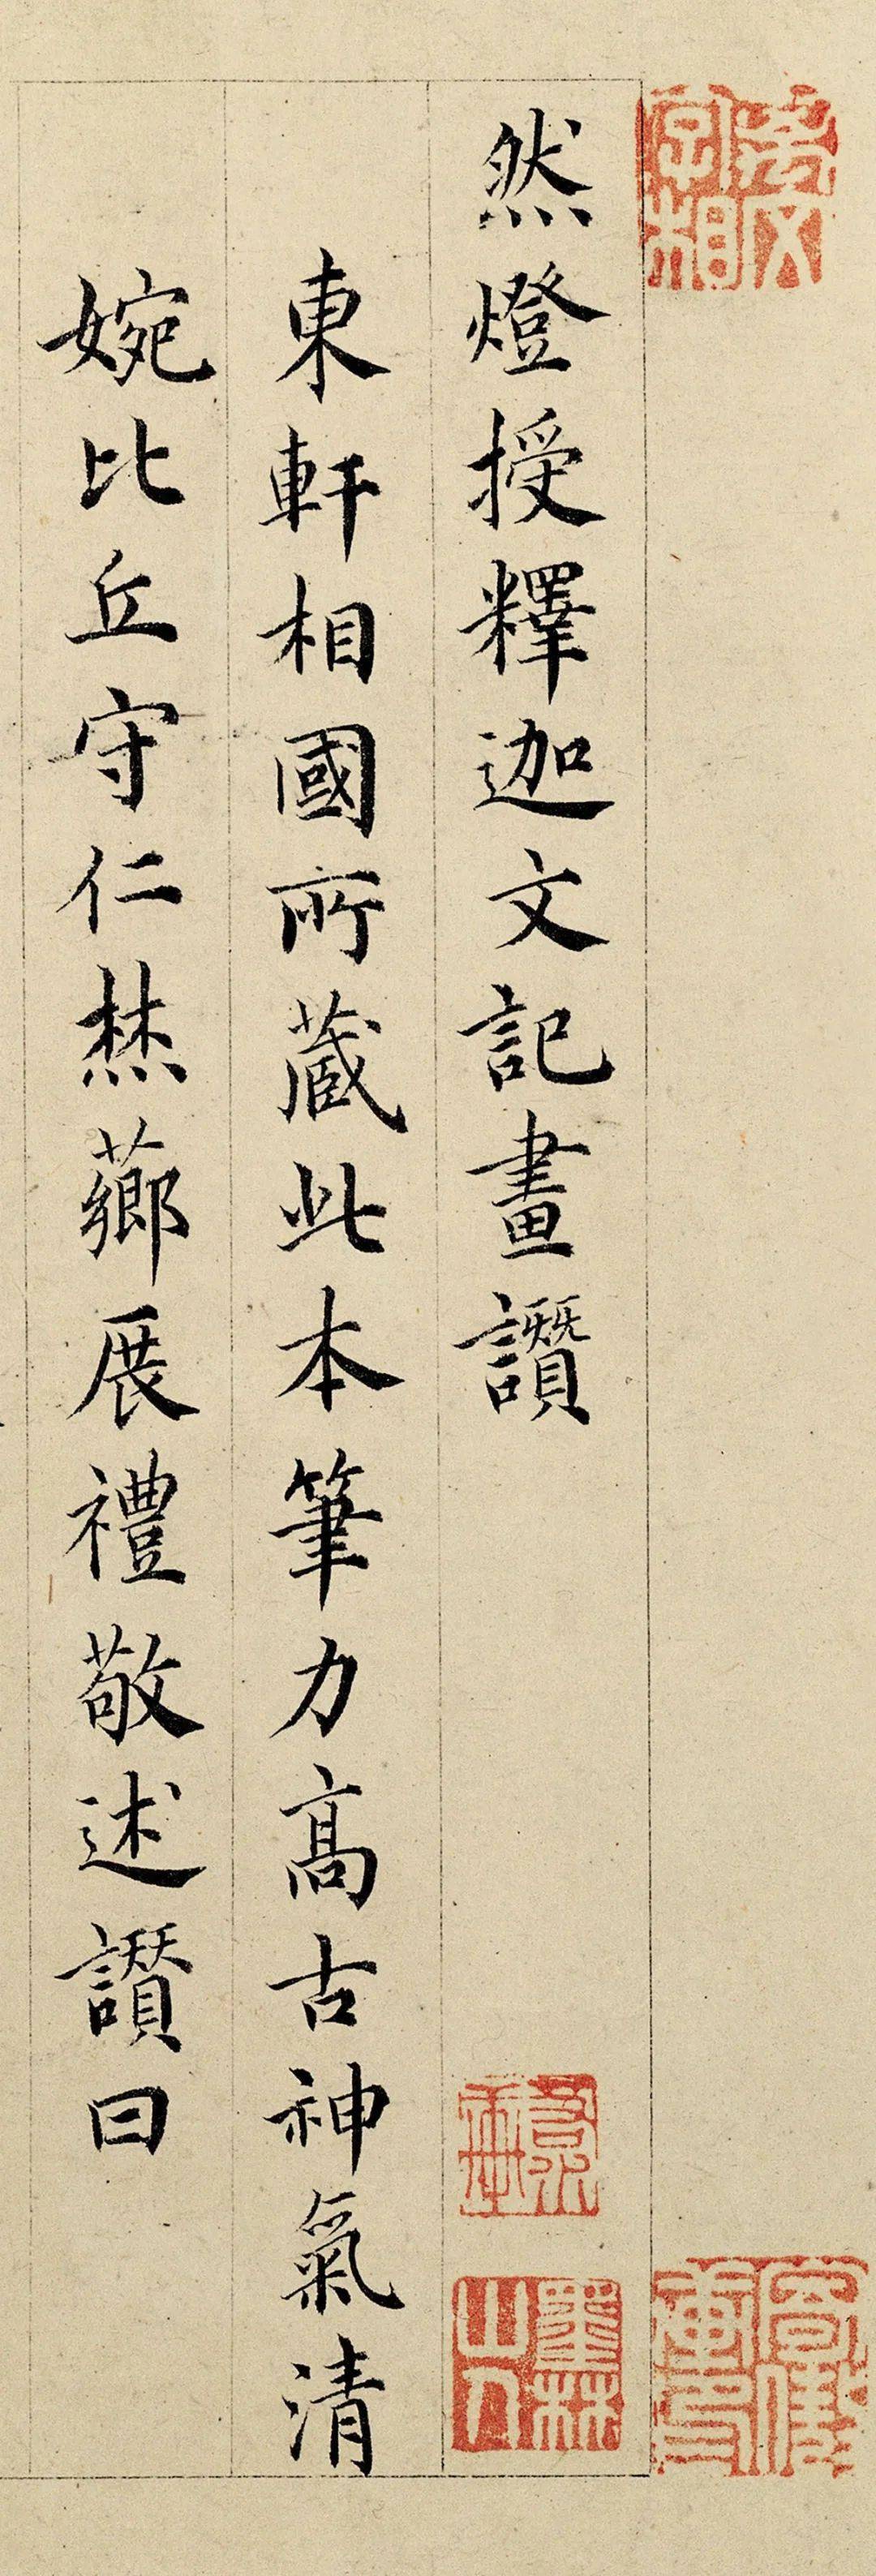 然燈授釋迦文記畫讚
東軒相國所蔵此本筆力髙古神氣清
婉比丘守仁焚薌展禮敬述讚曰